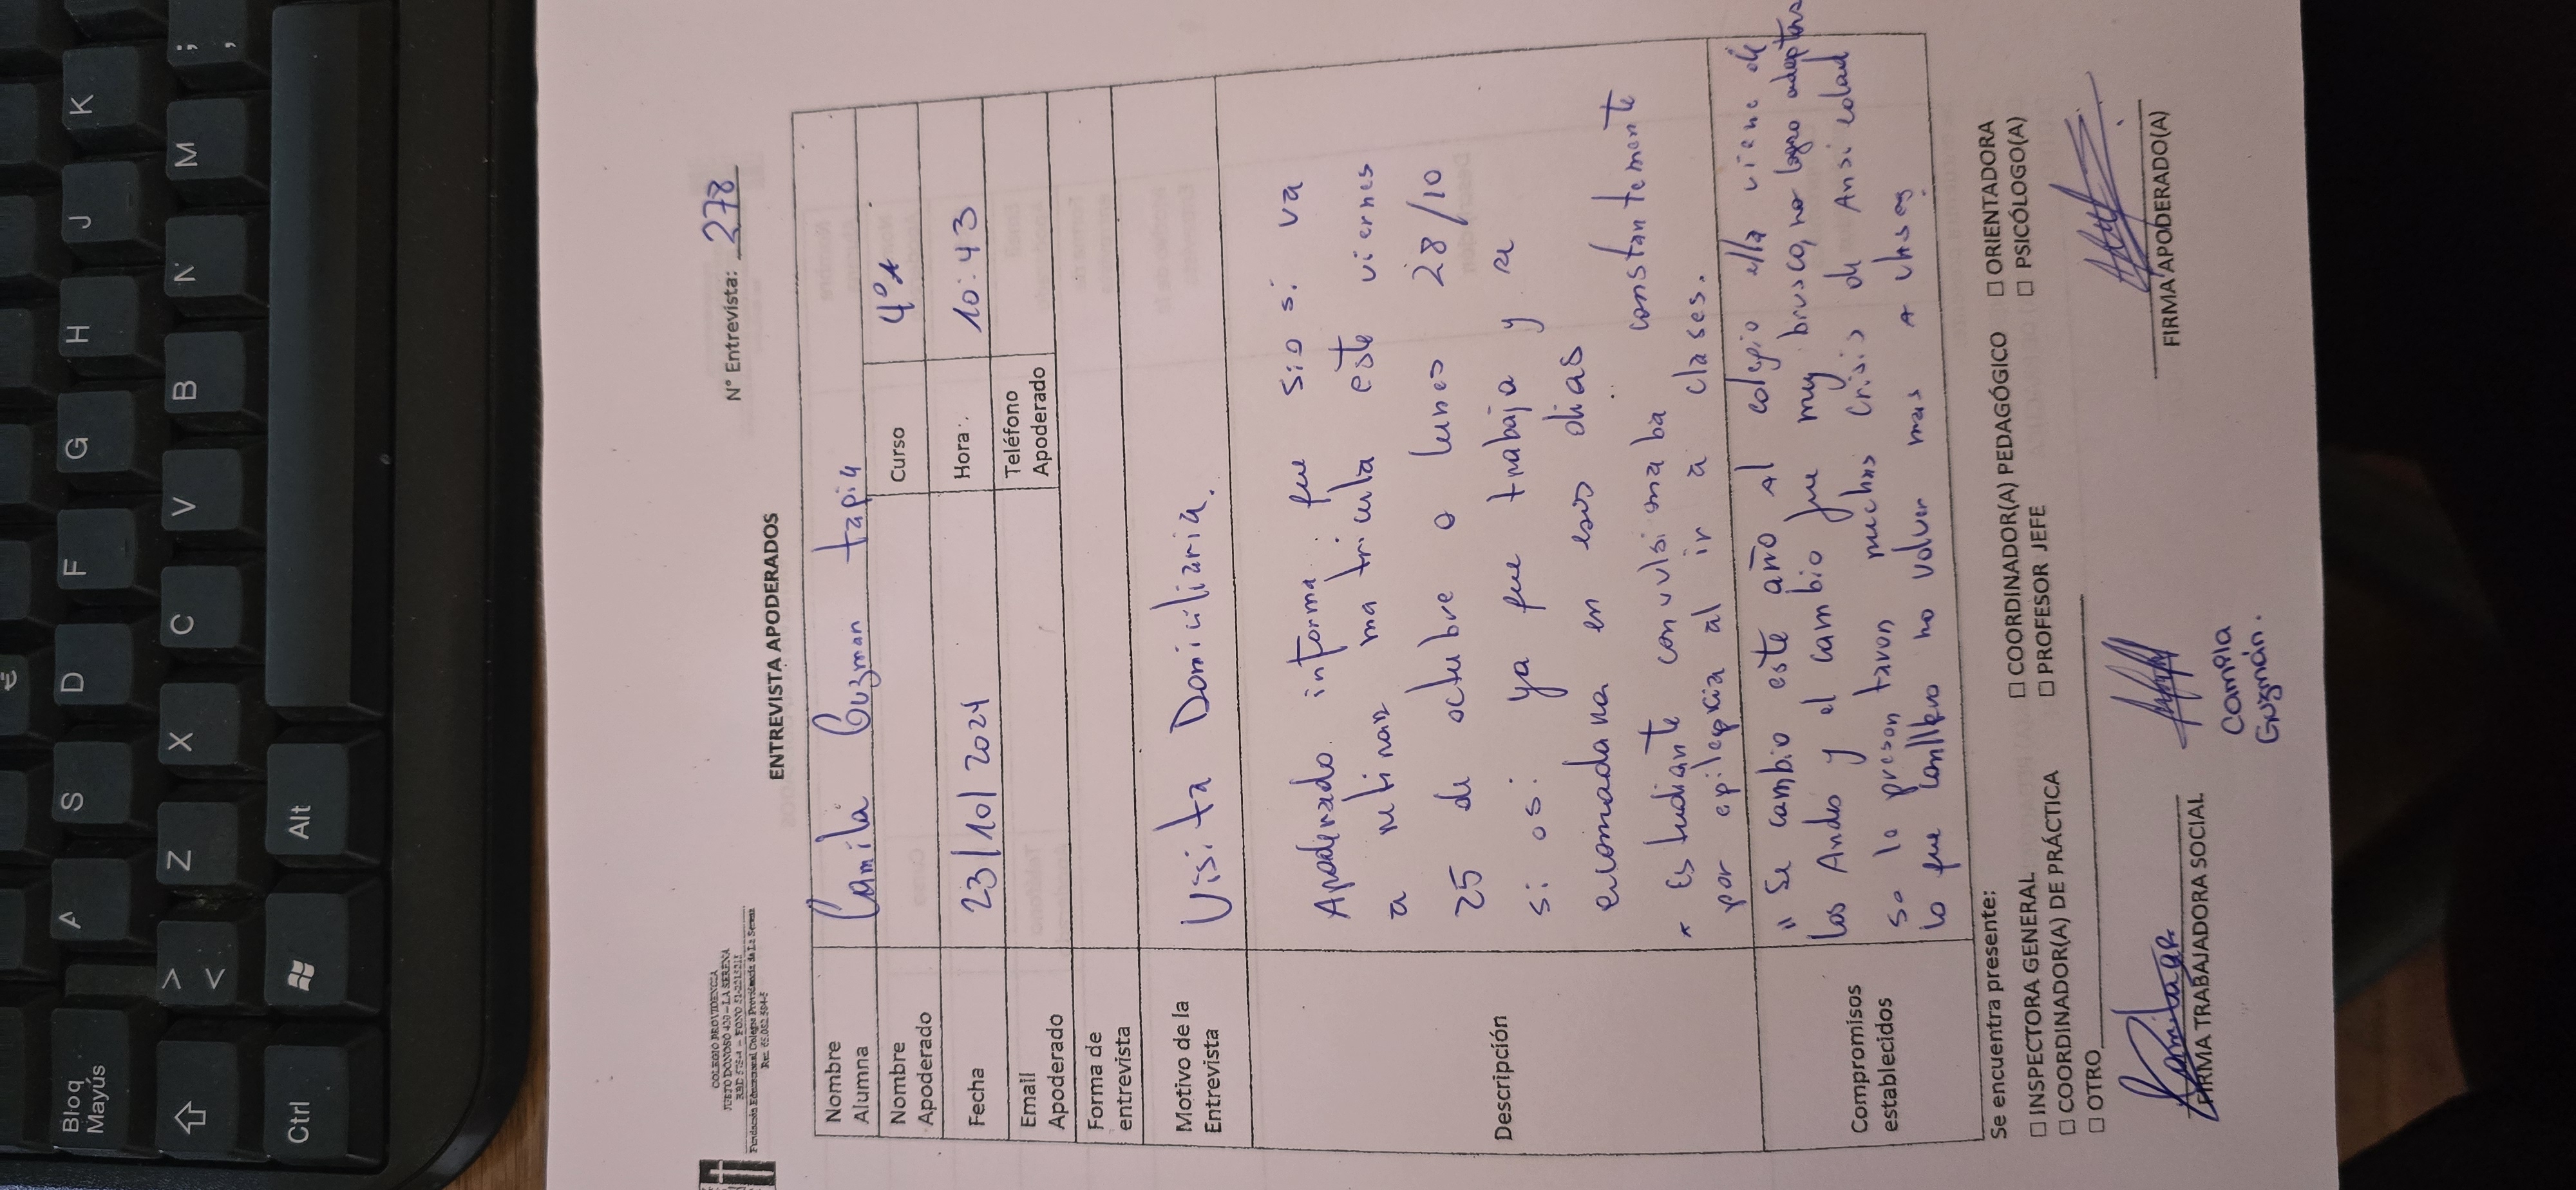 Bloq
Mayús
A
S
D
F
G
H
J
K
>
<
Z
X
C
V
B
N
M
;
,
Ctrl
Alt
COLEGIO PROVIDENCIA
JUSTO DONOSO 420 – LA SERENA
Fundación Educacional Colegio Providencia de La Serena
N° Entrevista: 278
ENTREVISTA APODERADOS
Nombre Alumna
Camila Guzman tapia
Nombre Apoderado
Curso
4°A
Fecha
23/10/2024
Hora
10:43
Email Apoderado
Teléfono Apoderado
Forma de entrevista
Motivo de la Entrevista
Visita Domiciliaria.
Descripción
Apoderado informa que sio si va
a retirar matricula este viernes
25 de octubre o lunes 28/10
si o si ya que trabaja y se
encomadana en esos dias
* Estudiante convulsionaba constantemente
por epilepcia al ir a clases.
Compromisos establecidos
" Se cambio este año Al colegio ella viene de
los Andes y el cambio fue muy brusco, no logro adaptarse
so le presentaron muchas crisis de Ansiedad
lo que conllevo no volver mas a clases
Se encuentra presente:
□ INSPECTORA GENERAL
□ COORDINADOR(A) PEDAGÓGICO
□ ORIENTADORA
□ COORDINADOR(A) DE PRÁCTICA
□ PROFESOR JEFE
□ PSICÓLOGO(A)
□ OTRO
FIRMA TRABAJADORA SOCIAL
Camila
Guzmán.
FIRMA APODERADO(A)